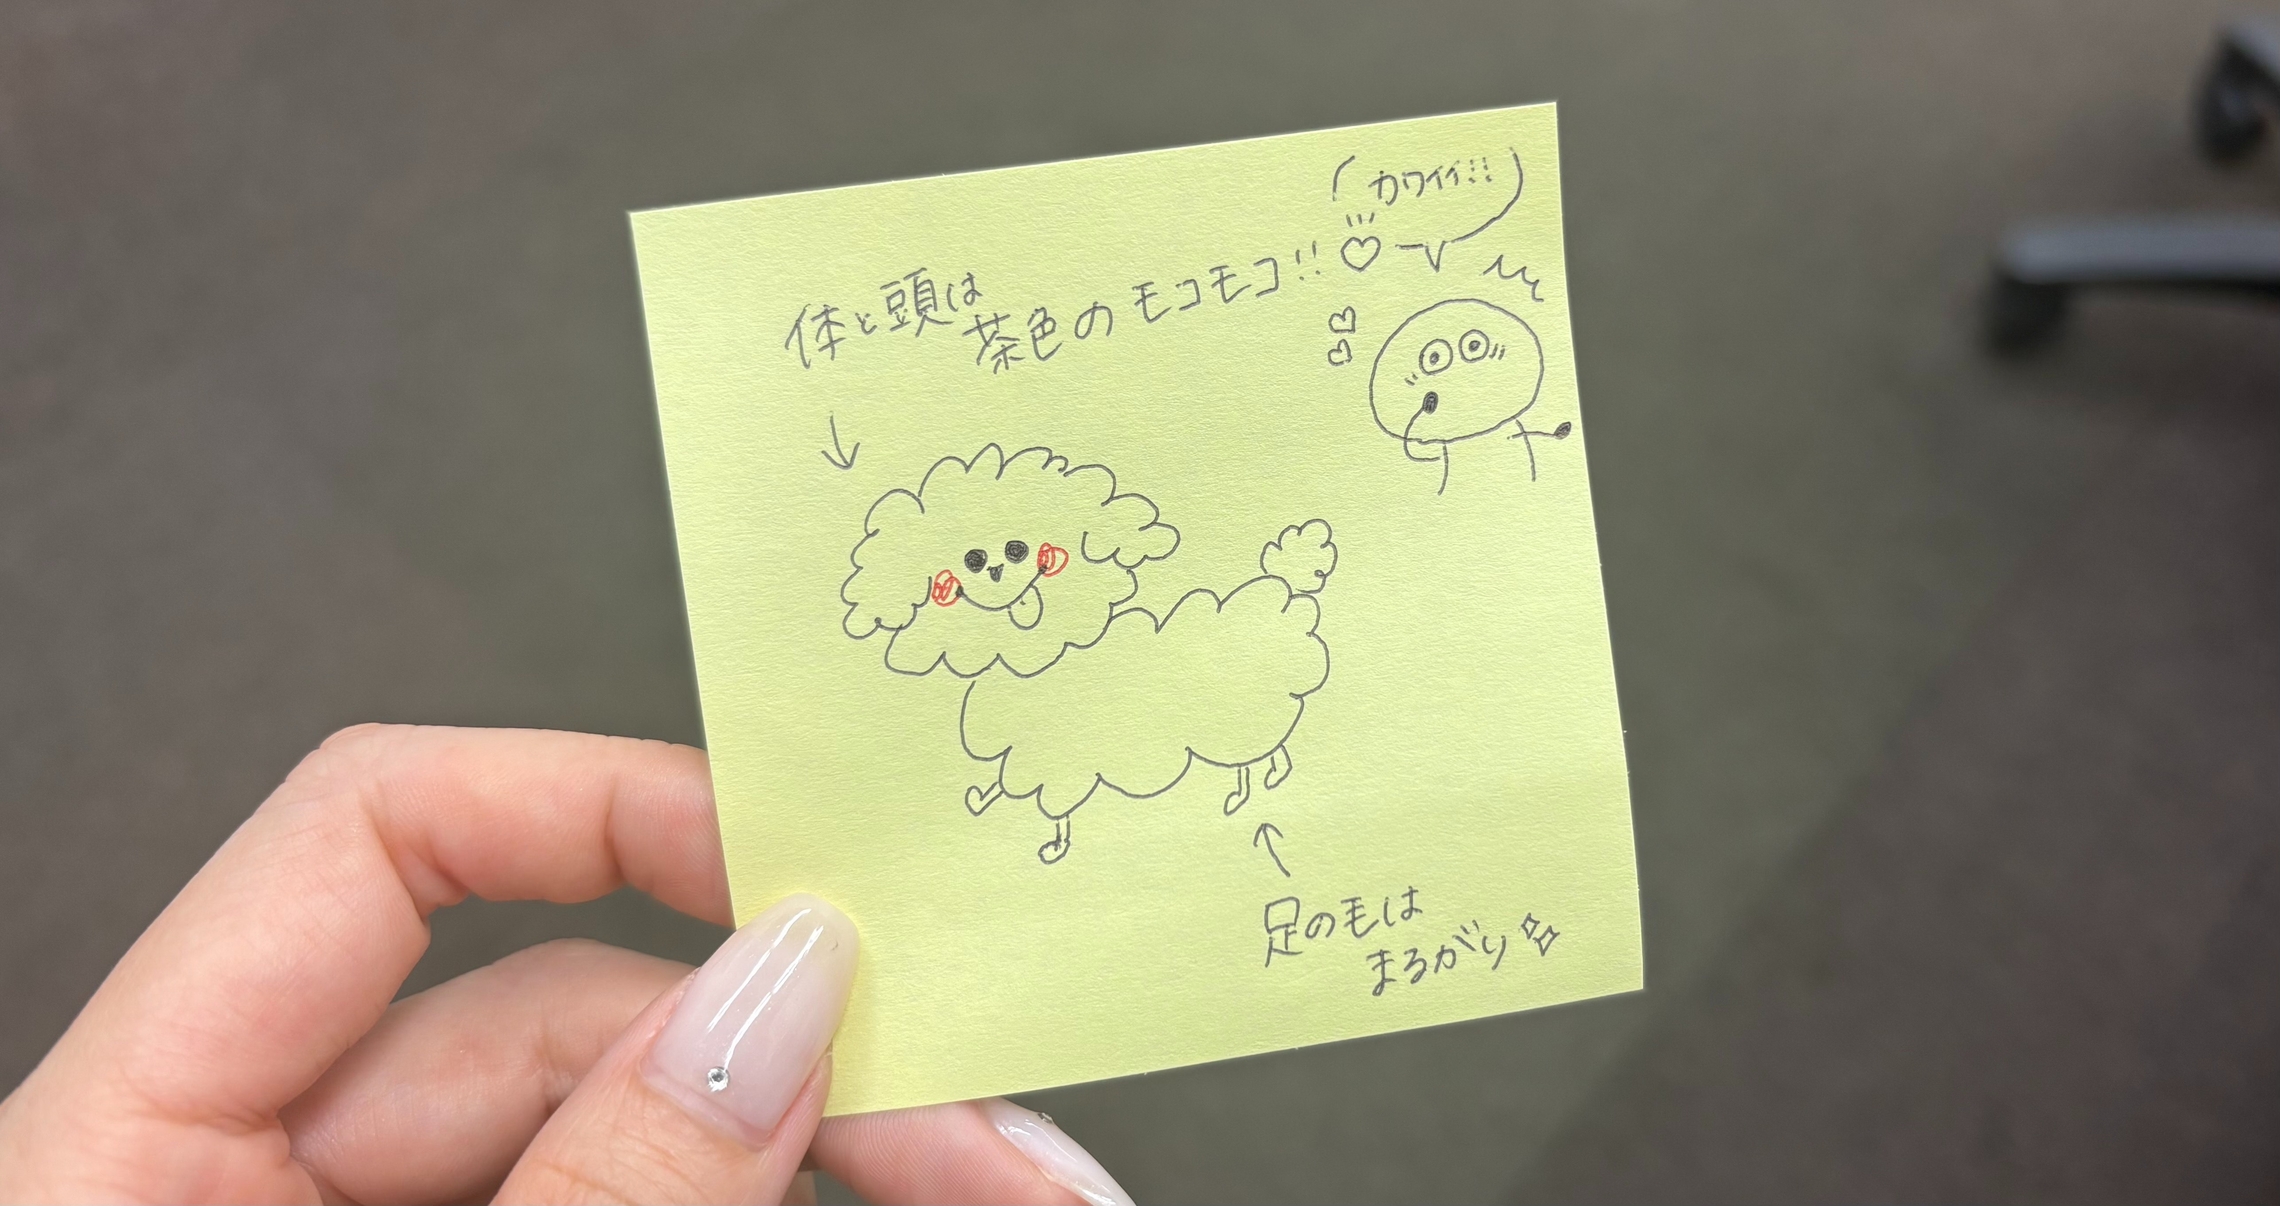 カワイイ!!
体と頭は
茶色のモコモコ!!♡
足の毛は
まるがり